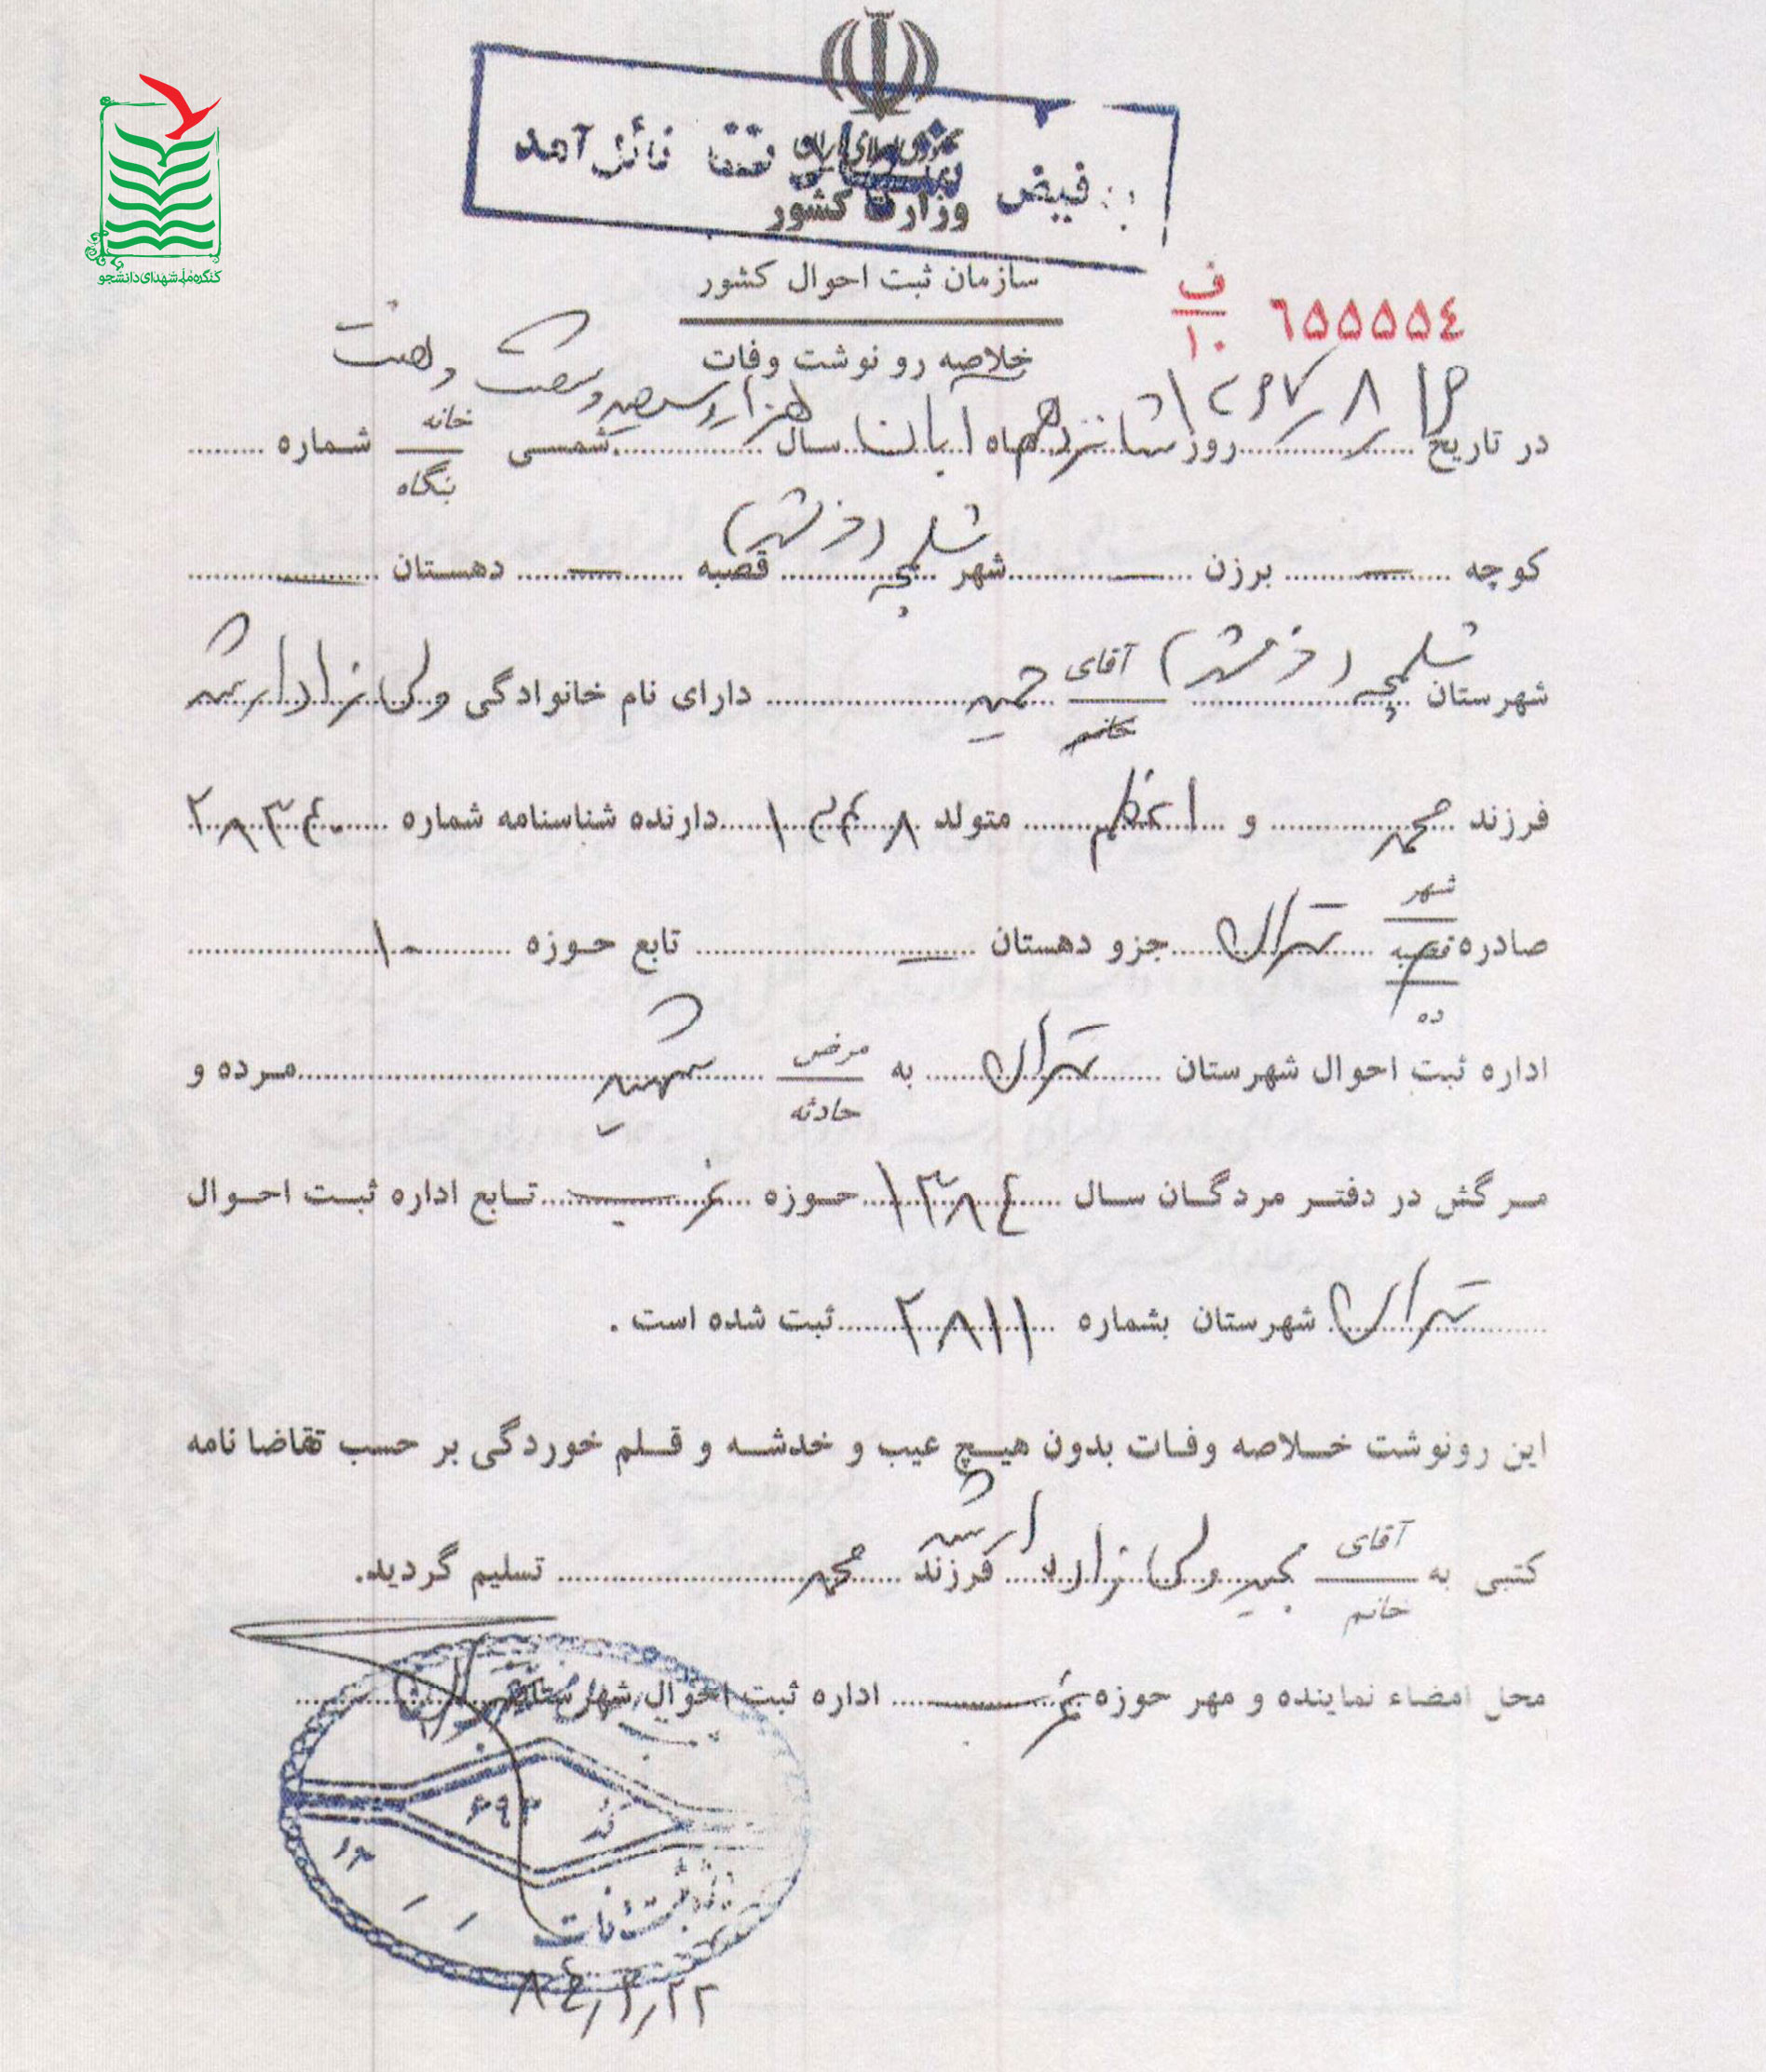 جمهوری اسلامی ایران
وزارت کشور
به فیض شهادت نائل آمد
سازمان ثبت احوال کشور
کنگره ملی شهدای دانشجو
ف
۱۰
٦٥٥٥٥٤
خلاصه رو نوشت وفات
در تاریخ ۱۶ / ۸ / ۱۳۶۷ روز شانزدهم ماه آبان سال هزار و سیصد و شصت و هفت شمسی خانه بنگاه شماره
کوچه — برزن — شهر شلمچه (خرمشهر) قصبه — دهستان —
شهرستان شلمچه (خرمشهر) آقای خانم حمید دارای نام خانوادگی ولی نژاد ارشد
فرزند محمد و اعظم متولد دارنده شناسنامه شماره
صادره شهر قصبه ده تهران جزو دهستان — تابع حوزه ۱۰
اداره ثبت احوال شهرستان تهران به مرض حادثه شهید مرده و
مرگش در دفتر مردگان سال ۱۳۸٤ حوزه غرب تابع اداره ثبت احوال
تهران شهرستان بشماره ۲۸۱۱ ثبت شده است .
این رونوشت خلاصه وفات بدون هیچ عیب و خدشه و قلم خوردگی بر حسب تقاضا نامه
کتبی به آقای خانم مجید ولی نژاد ارشد فرزند محمد تسلیم گردید.
محل امضاء نماینده و مهر حوزه غرب اداره ثبت احوال شهرستان تهران
کد ۶۹۳
ثبت وفات
۸٤٫۳٫۲۲